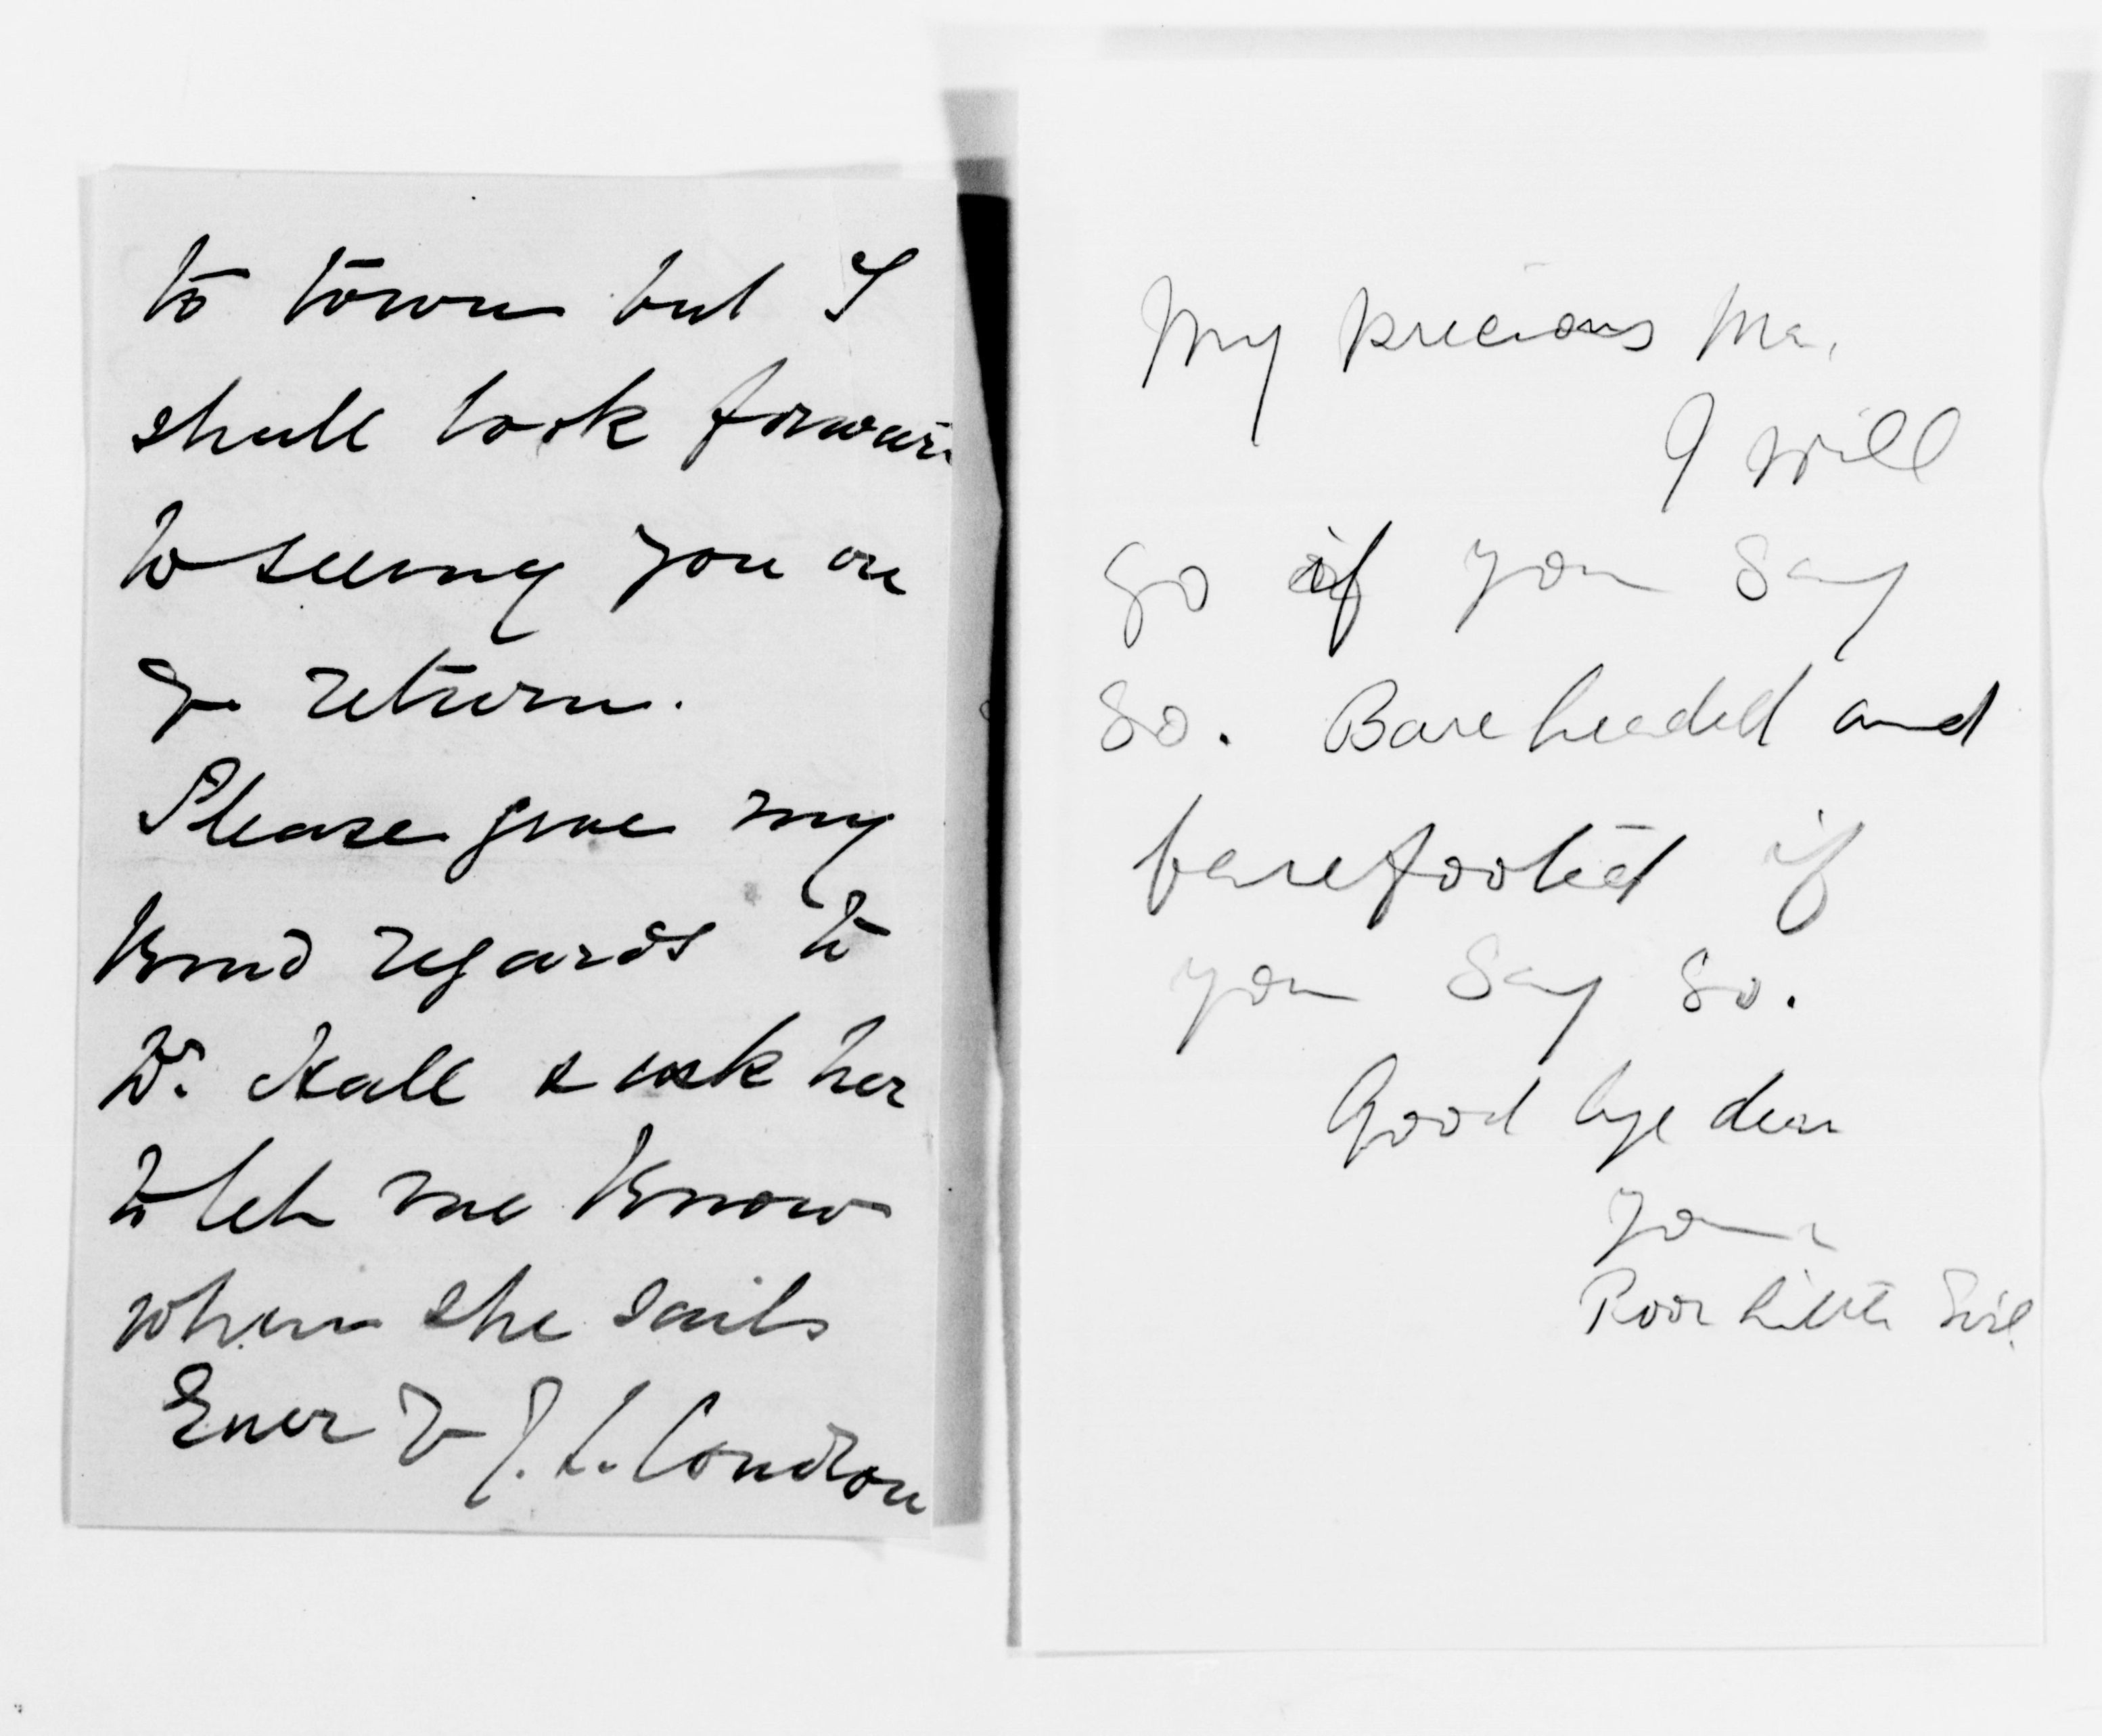 to town but I
shall look forward
to seeing you on
yr return.
Please give my
kind regards to
Dr. Hall & ask her
to let me know
when she sails
Ever Yr
My precious Ma,
I will
go if you say
so. Bareheaded and
barefooted if
you say so.
Good bye dear
Your
Poor little Girl.